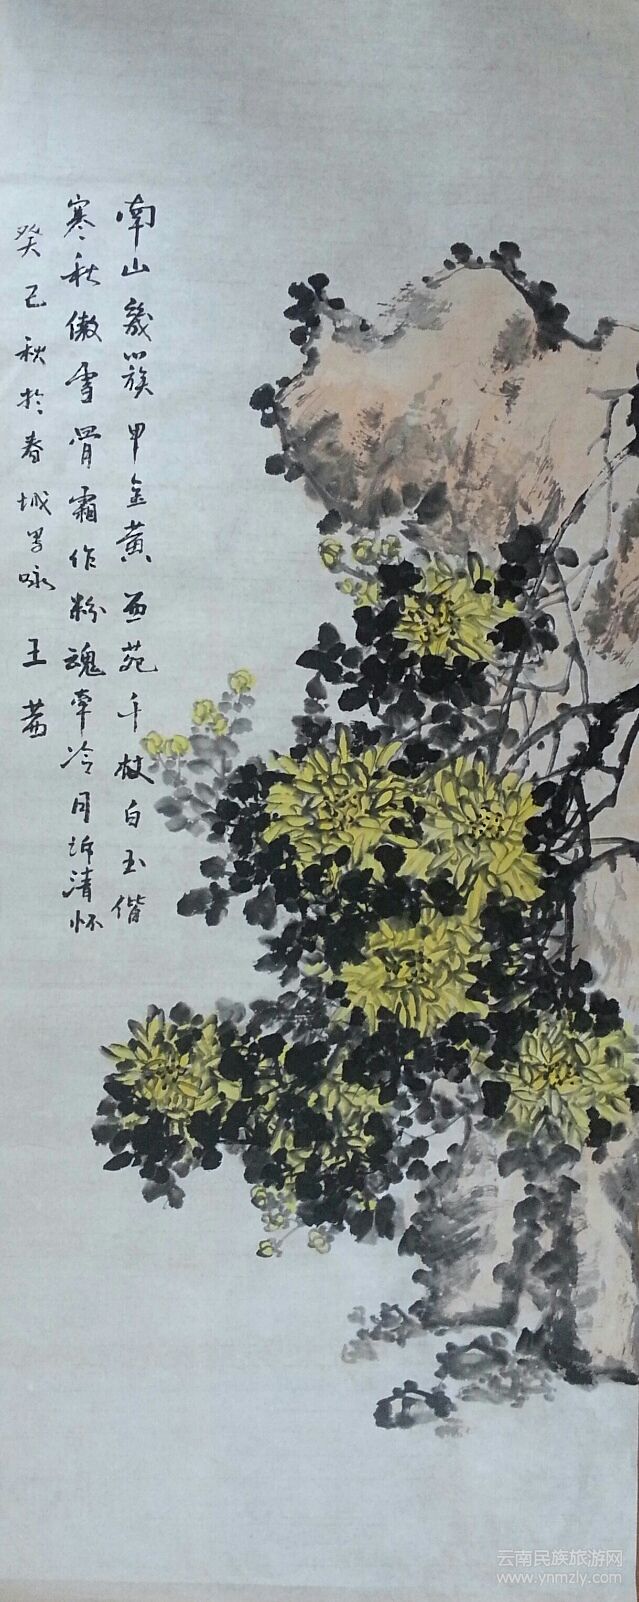 南山幾簇甲金黄西苑千枝白玉偕
寒秋傲雪骨霜作粉魂牵冷月诉清怀
癸巳秋於春城马咏王茜
云南民族旅游网
www.ynmzly.com